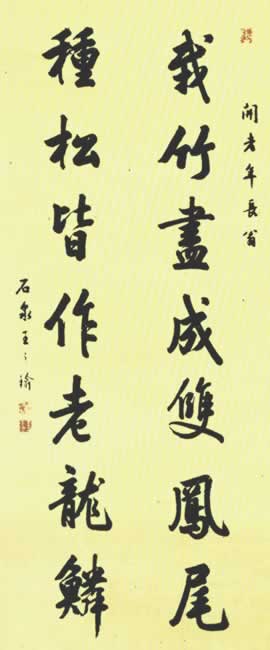 開老年長翁
栽竹盡成雙鳳尾
種松皆作老龍鱗
石泉王王瑜